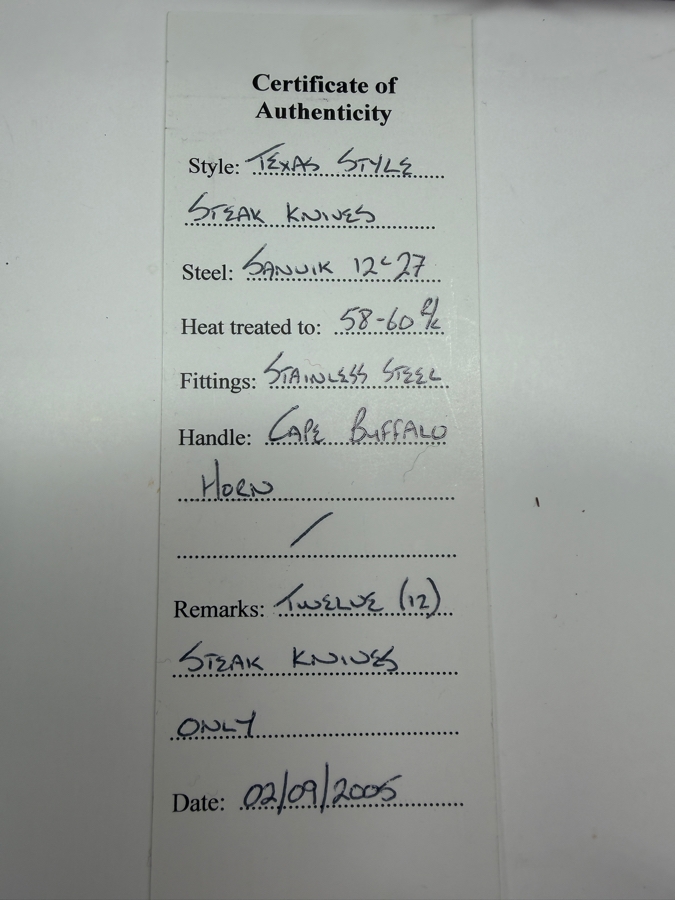 Certificate of
Authenticity
Style: TEXAS STYLE
STEAK KNIVES
Steel: SANVIK 12C27
Heat treated to: 58-60 R/c
Fittings: STAINLESS STEEL
Handle: CAPE BUFFALO
HORN
/
Remarks: TWELVE (12)
STEAK KNIVES
ONLY
Date: 02/09/2005